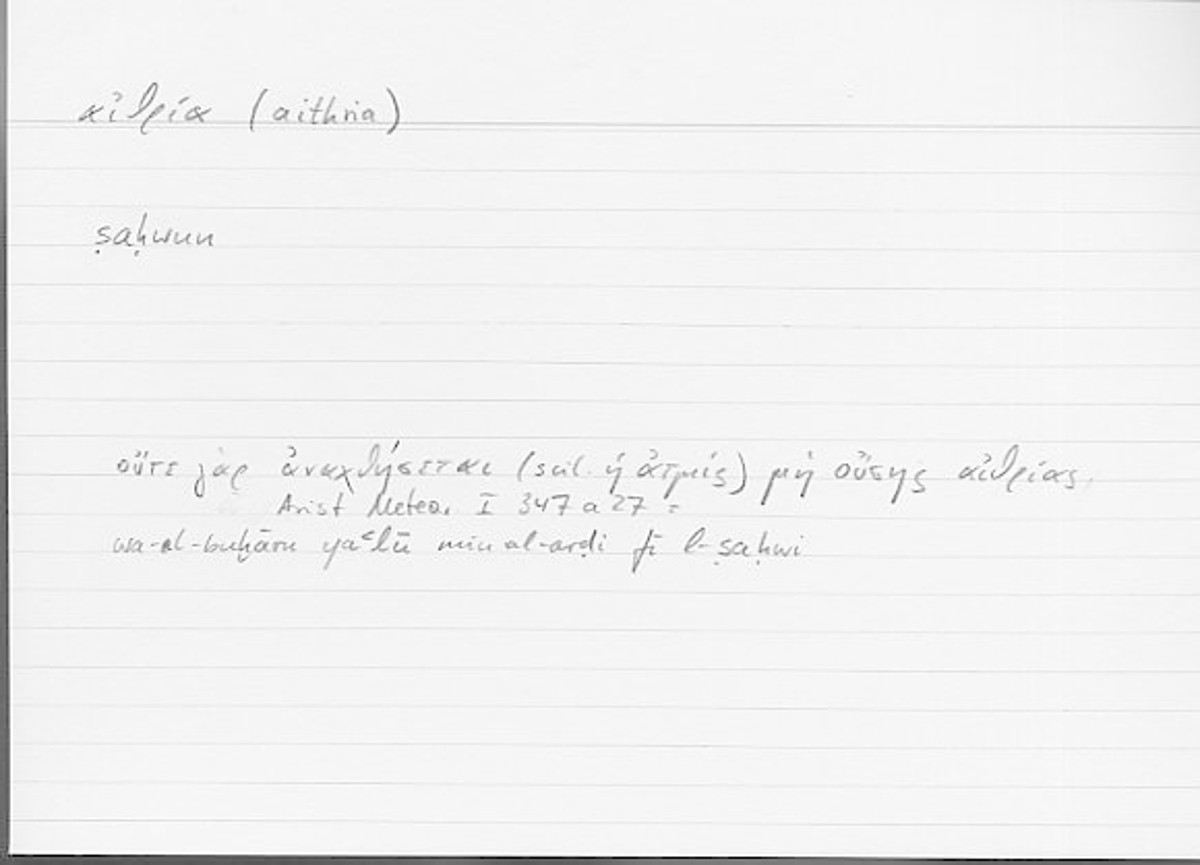 αἰθρία (aithria)
ṣaḥwun
οὔτε γὰρ ἀναχθήσεται (scil. ἡ ἀτμίς) μὴ οὔσης αἰθρίας.
Arist Meteo. I 347 a 27 =
wa-al-buḫāru yaʿlū min al-arḍi fī l-ṣaḥwi